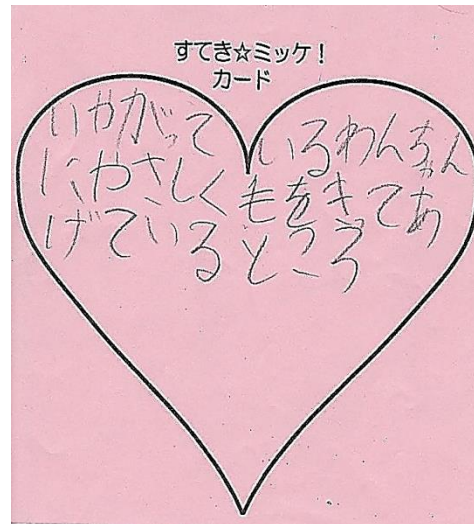 すてき☆ミッケ！
カード
いやがって いるわんちゃん
にやさしくもをきってあ
げているところ